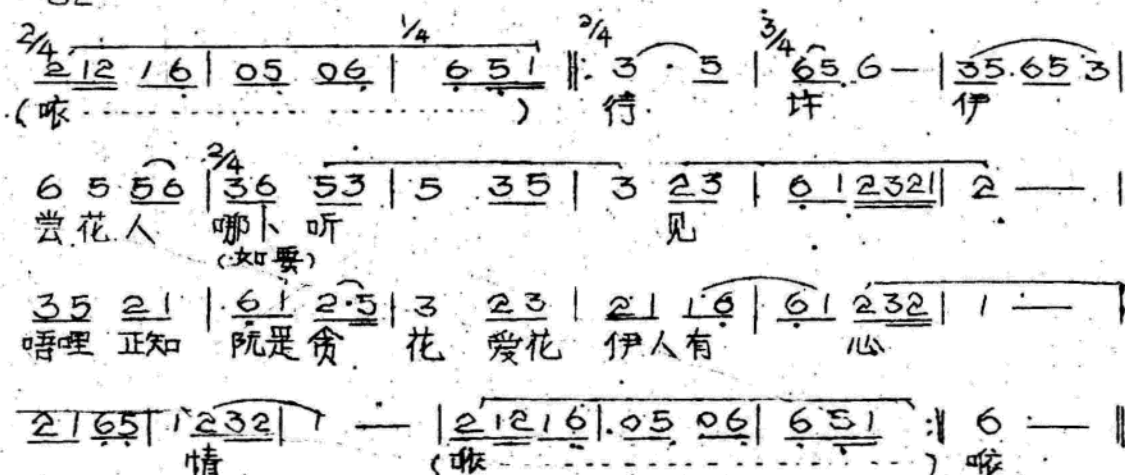 2/4 1/4 2/4 3/4
2 12 1 6 | 05 06 | 6 5 1 ‖: 3 · 5 | 65 6 — | 35·65 3 |
(咳 ........................ ) 待 许 伊
2/4
6 5 56 | 36 53 | 5 35 | 3 23 | 6 1 2321 | 2 — — |
尝花人 哪卜听 见
(如要)
35 21 | 61 2·5 | 3 23 | 21 16 | 61 232 | 1 · —
唔哩 正知 阮是贪 花 爱花 伊人有 心
21 65 | 1 232 | 1 — | 2 12 1 6 | 05 06 | 6 51 :‖ 6 · — ‖
情 (咳 ........................ ) 咳